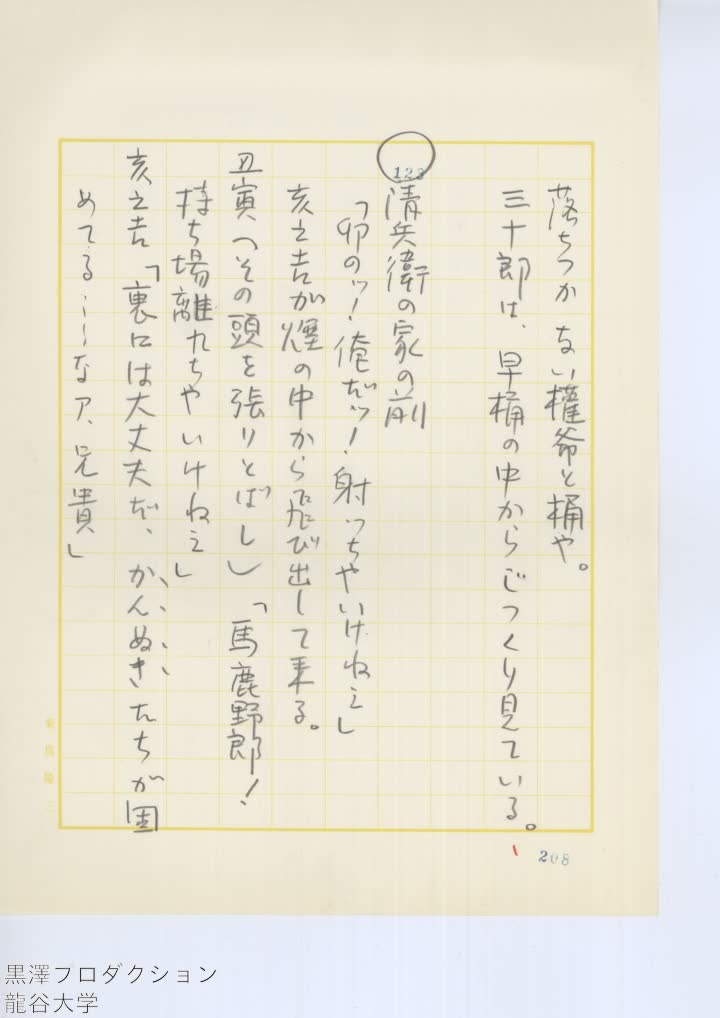 落ちつかない權爺と桶や。
三十郎は、早桶の中からじつくり見ている。
123
清兵衛の家の前
「卯のッ！俺だッ！射っちやいけねえ」
亥之吉が煙の中から飛び出して来る。
丑寅（その頭を張りとばし）「馬鹿野郎！
持ち場離れちやいけねえ」
亥之吉「裏には大丈夫だ、かんぬきたちが固
めてる……なア、兄貴」
208
黒澤プロダクション
龍谷大学